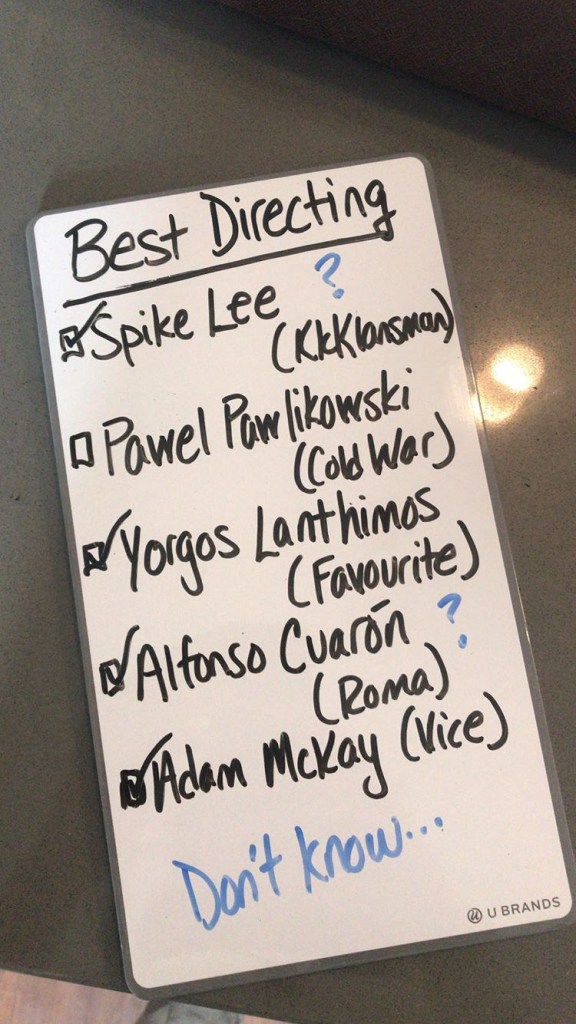 Best Directing
☑ Spike Lee ?
(KkKlansman)
☐ Pawel Pawlikowski
(Cold War)
☑ Yorgos Lanthimos
(Favourite)
☑ Alfonso Cuarón ?
(Roma)
☑ Adam McKay (Vice)
Don't know...
U BRANDS